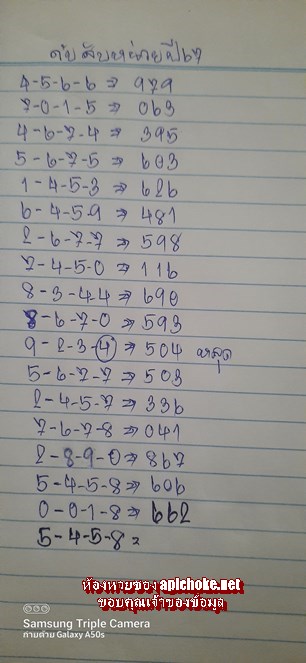 4-5-6-6 ⇒ 979
7-0-1-5 ⇒ 063
4-6-7-4 ⇒ 395
5-6-7-5 ⇒ 603
1-4-5-3 ⇒ 626
6-4-5-9 ⇒ 481
2-6-7-7 ⇒ 598
7-4-5-0 ⇒ 116
8-3-4-4 ⇒ 690
8-6-7-0 ⇒ 593
9-2-3-4 ⇒ 504 หลุด
5-6-7-7 ⇒ 503
2-4-5-7 ⇒ 336
7-6-7-8 ⇒ 041
2-8-9-0 ⇒ 867
5-4-5-8 ⇒ 606
0-0-1-8 ⇒ 662
5-4-5-8 =
ห้องหวยของ apichoke.net
ขอบคุณเจ้าของข้อมูล
Samsung Triple Camera
ถ่ายด้วย Galaxy A50s